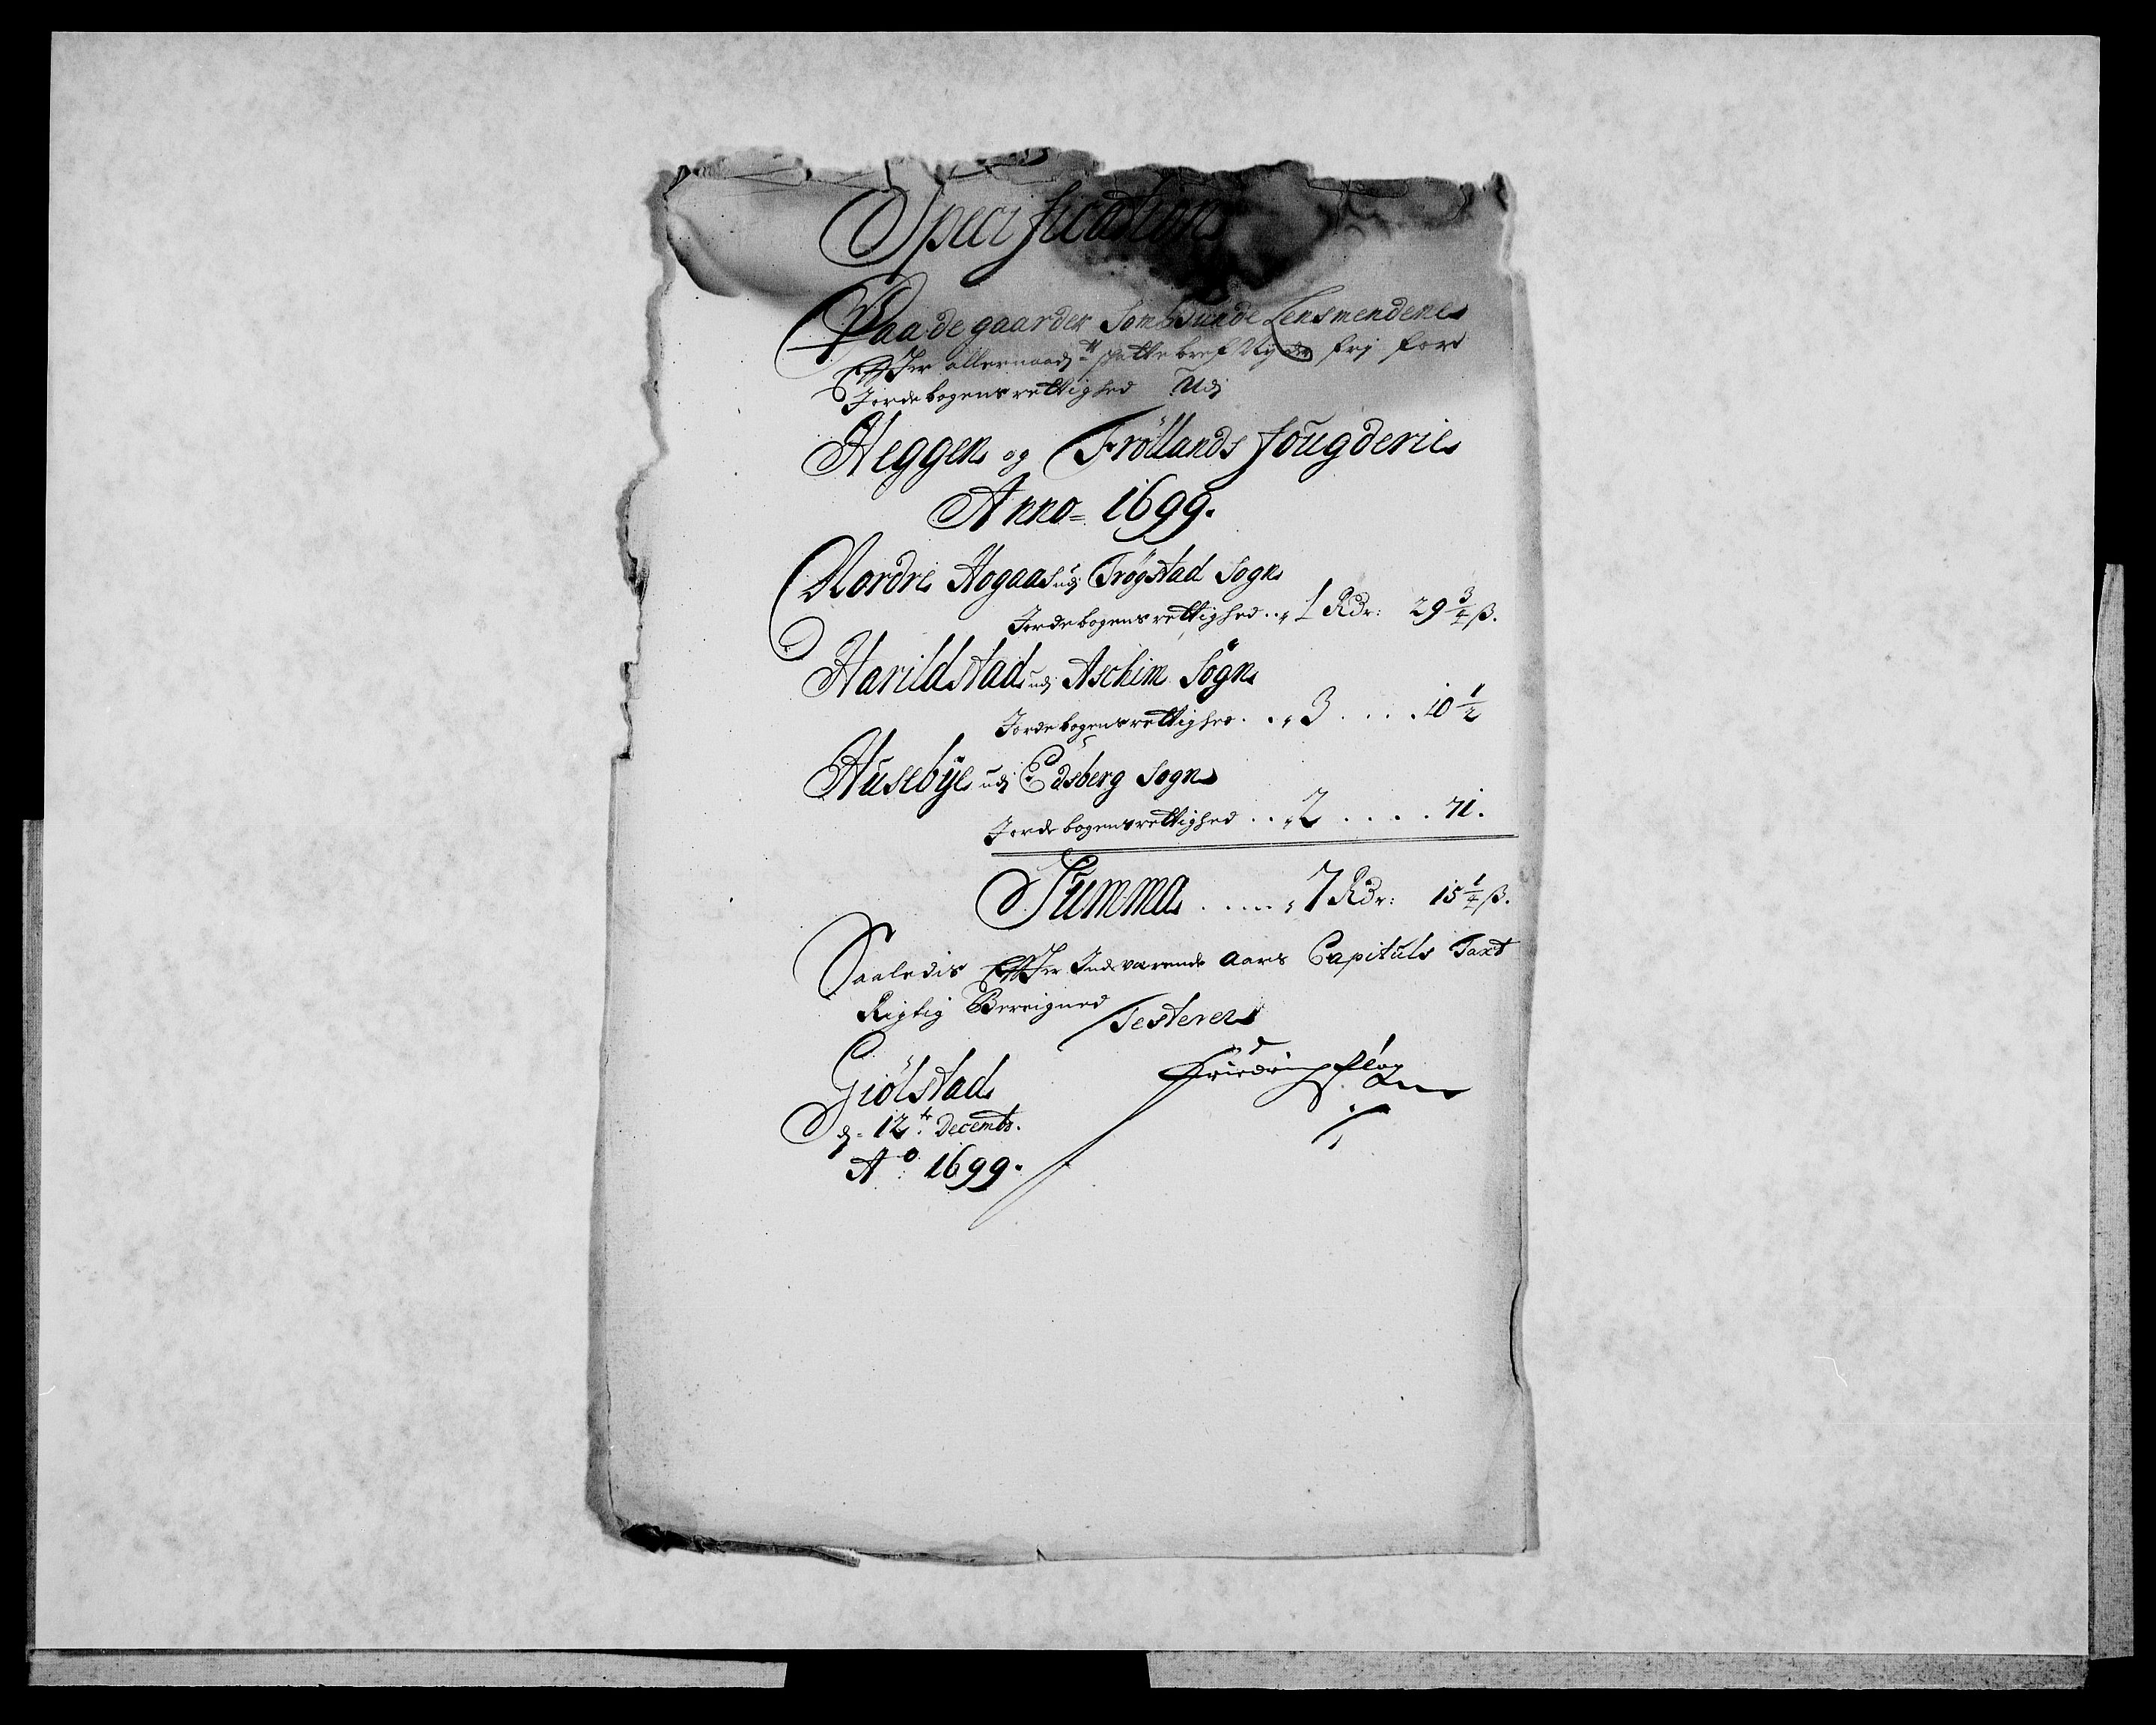 Specification
Paa de gaarder Som Bunde Lensmendene
Efter allernaadst Skatte bref Nyder frj for
Jordebogens rettighed Udj
Heggen og Frøllands fougderie
Anno = 1699.
Nordre Hogaas udj Trøgstad Sogn
Jordebogens rettighed .. „ 1 Rdr: 29 3/4 ß.
Harildstad udj Aschim Sogn
Jordebogens rettighed . . „ 3 . . . . 10 1/2
Husebye udj Edsberg Sogn
Jordebogens rettighed . . „ 2 . . . . . 71.
Summa ..... „ 7 Rdr: 15 1/4 ß.
Saaledis Efter Indeværende Aars Capituls Taxt
Rigtig Bereigned
Testerer
Giølstad
d = 12te Decembr.
Ao: 1699.